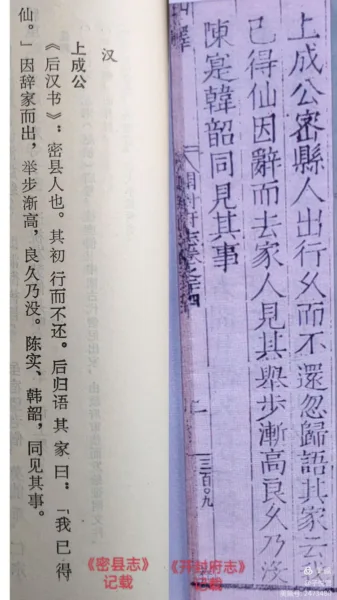 上成公密縣人出行乆而不還忽歸語其家云
已得仙因辭而去家人見其舉步漸高良乆乃没
陳寔韓韶同見其事
三百〇九
汉
上成公
《后汉书》：密县人也。其初行而不还。后归语其家曰：“我已得
仙。”因辞家而出，举步渐高，良久乃没。陈实、韩韶，同见其事。
《密县志》
记载
《开封府志》
记载